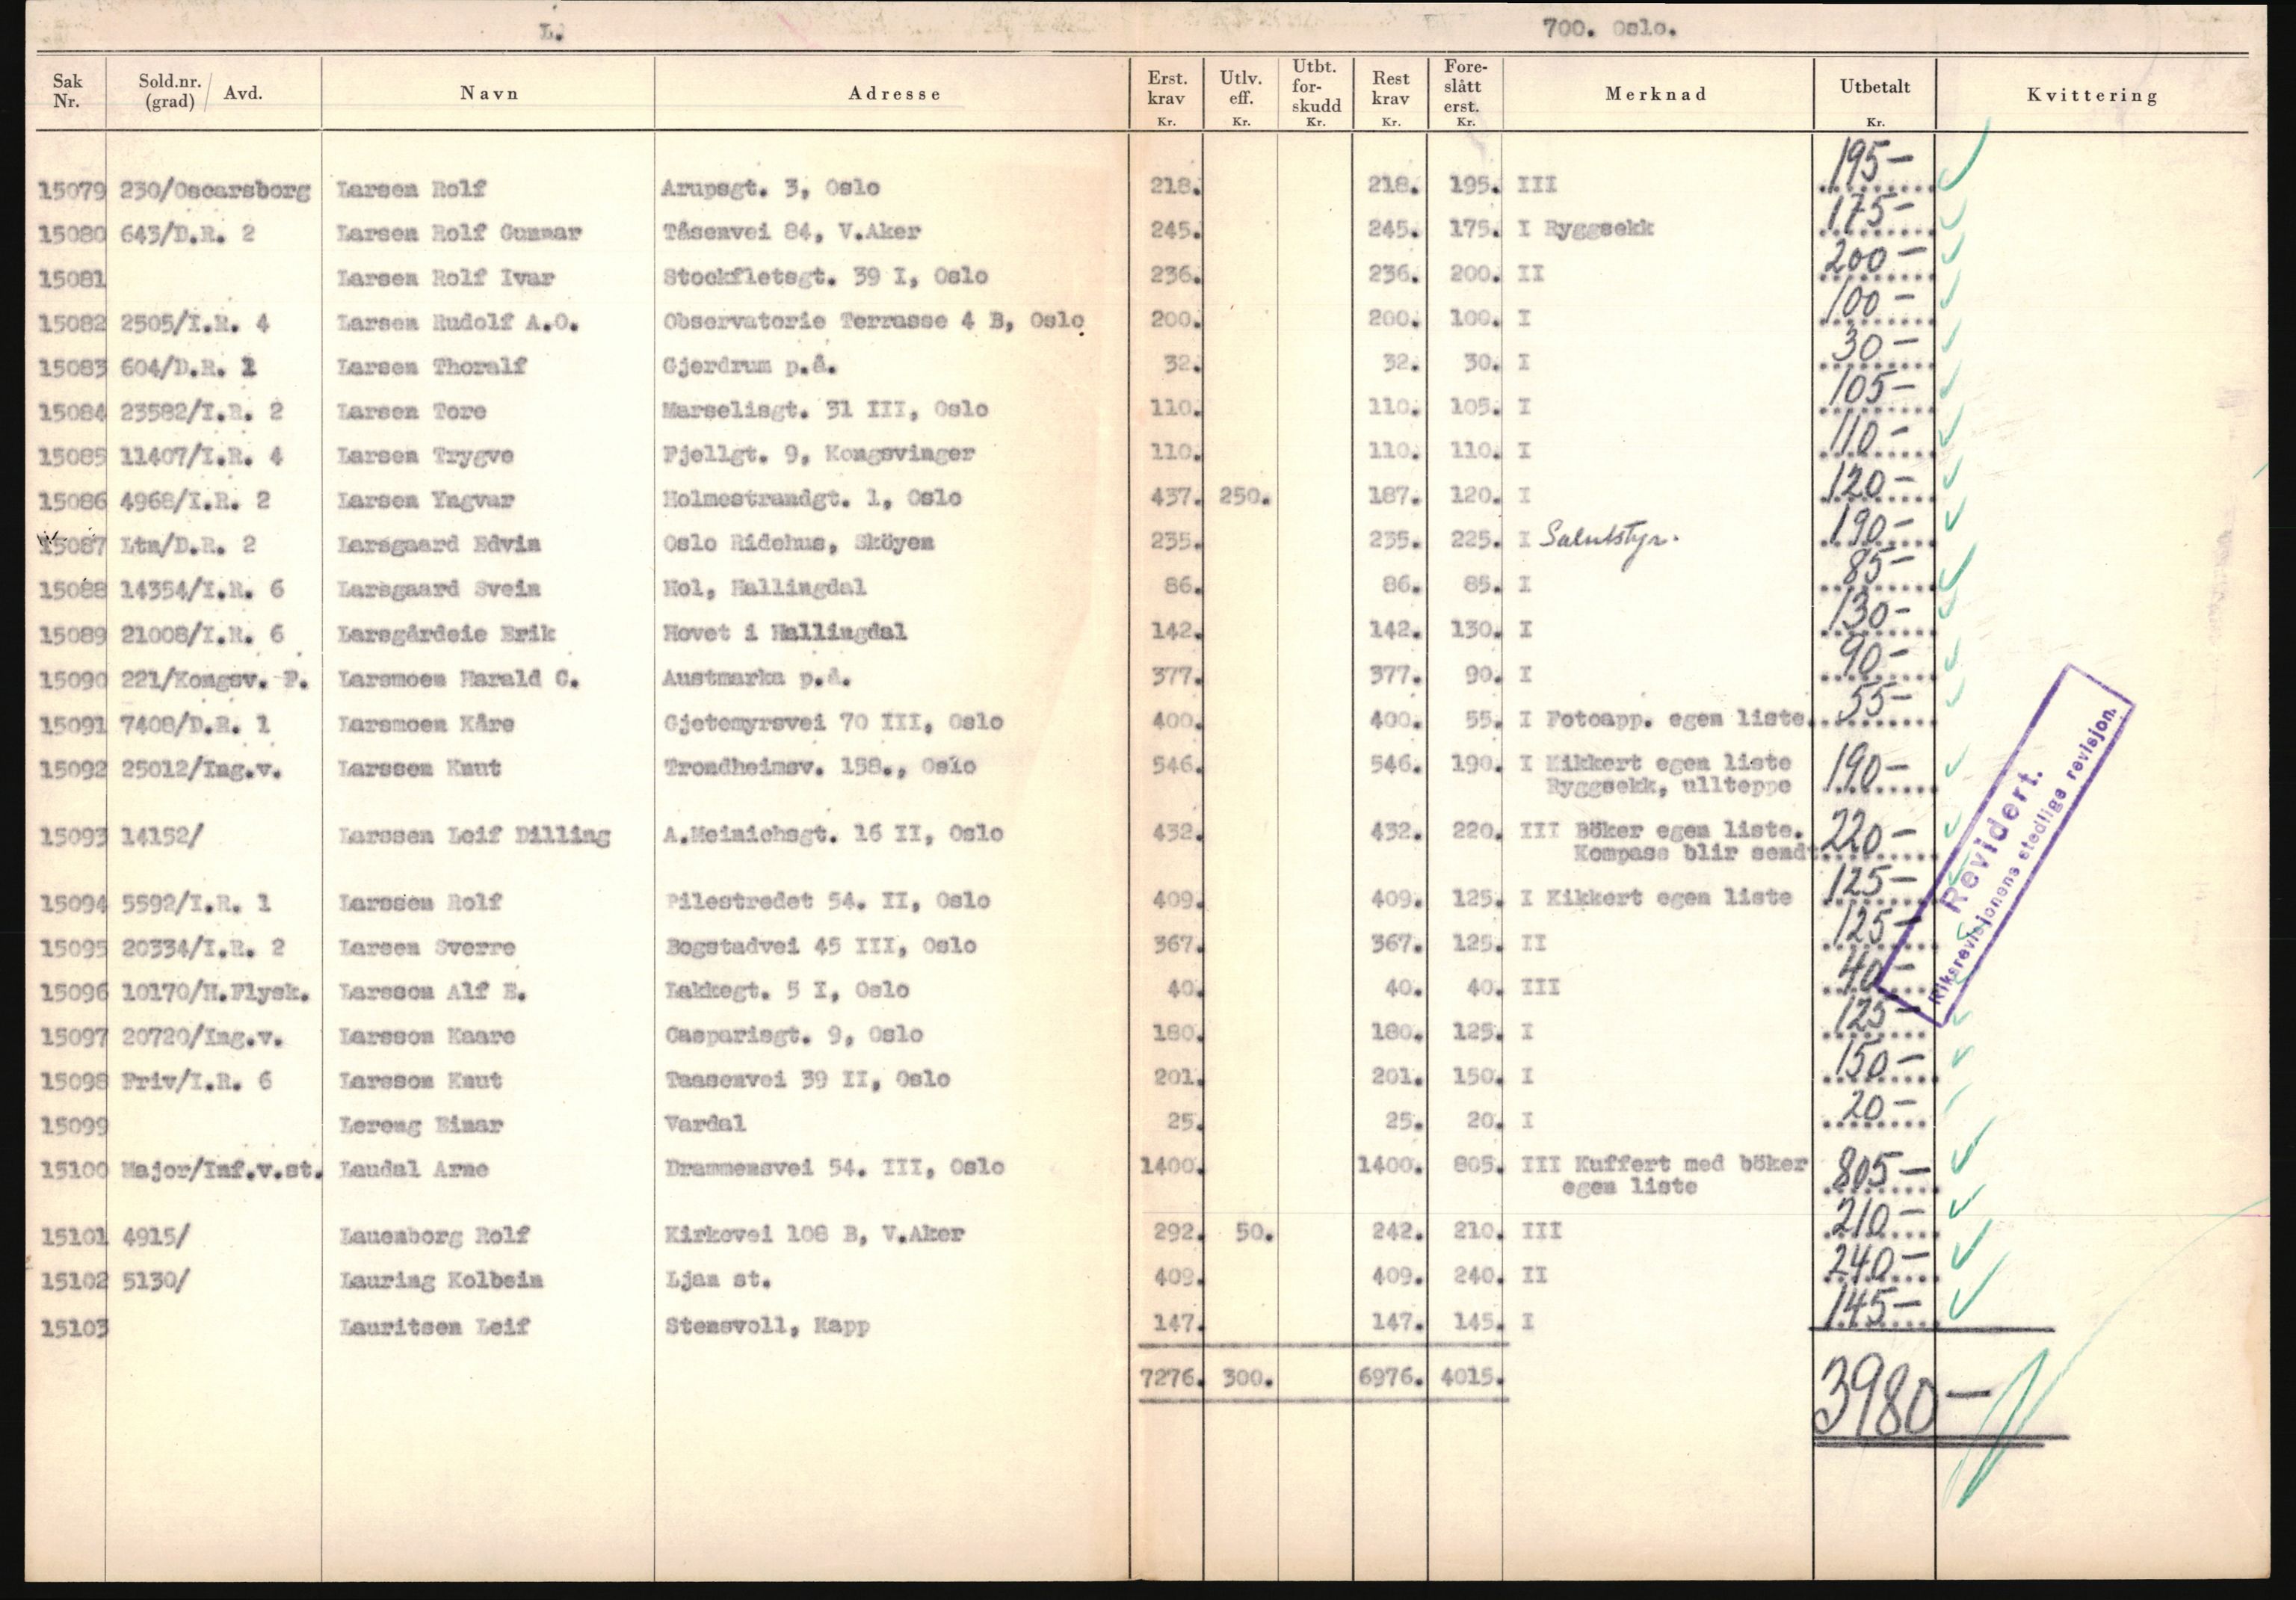 L.
700. Oslo.
Sak Nr. Sold.nr. (grad) / Avd. Navn Adresse Erst. krav Kr. Utlv. eff. Kr. Utbt. for- skudd Kr. Rest krav Kr. Fore- slått erst. Kr. Merknad Utbetalt Kr. Kvittering
15079 230/Oscarsborg Larsen Rolf Arupsgt. 3, Oslo 218. 218. 195. III 195-
15080 643/D.R. 2 Larsen Rolf Gunnar Tåsenvei 84, V.Aker 245. 245. 175. I Ryggsekk 175-
15081 Larsen Rolf Ivar Stockfletsgt. 39 I, Oslo 236. 236. 200. II 200-
15082 2505/I.R. 4 Larsen Rudolf A.O. Observatorie Terrasse 4 B, Oslo 200. 200. 100. I 100-
15083 604/D.R. 1 Larsen Thoralf Gjerdrum p.å. 32. 32. 30. I 30-
15084 23582/I.R. 2 Larsen Tore Marselisgt. 31 III, Oslo 110. 110. 105. I 105-
15085 11407/I.R. 4 Larsen Trygve Fjellgt. 9, Kongsvinger 110. 110. 110. I 110-
15086 4968/I.R. 2 Larsen Yngvar Holmestrandgt. 1, Oslo 437. 250. 187. 120. I 120-
15087 Ltn/D.R. 2 Larsgaard Edvin Oslo Ridehus, Sköyen 235. 235. 225. I 190-
15088 14354/I.R. 6 Larsgaard Svein Hol, Hallingdal 86. 86. 85. I 85-
15089 21008/I.R. 6 Larsgårdeie Erik Hovet i Hallingdal 142. 142. 130. I 130-
15090 221/Kongsv. F. Larsmoen Harald C. Austmarka p.å. 377. 377. 90. I 90-
15091 7408/D.R. 1 Larsmoen Kåre Gjetemyrsvei 70 III, Oslo 400. 400. 55. I Fotoapp. egen liste. 55-
15092 25012/Ing.v. Larssen Knut Trondheimsv. 158., Oslo 546. 546. 190. I Kikkert egen liste 190-
Ryggsekk, ullteppe
15093 14152/ Larssen Leif Dilling A.Heinichsgt. 16 II, Oslo 432. 432. 220. III Böker egen liste. 220-
Kompass blir sendt
15094 5592/I.R. 1 Larssen Rolf Pilestredet 54. II, Oslo 409. 409. 125. I Kikkert egen liste 125-
15095 20334/I.R. 2 Larsen Sverre Bogstadvei 45 III, Oslo 367. 367. 125. II 125-
15096 10170/H.Flysk. Larsson Alf E. Lakkegt. 5 I, Oslo 40. 40. 40. III 40-
15097 20720/Ing.v. Larsson Kaare Casparisgt. 9, Oslo 180. 180. 125. I 125-
15098 Friv/I.R. 6 Larsson Knut Taasenvei 39 II, Oslo 201. 201. 150. I 150-
15099 Lereng Einar Vardal 25. 25. 20. I 20-
15100 Major/Inf.v.st. Laudal Arne Drammensvei 54. III, Oslo 1400. 1400. 805. III Kuffert med böker 805-
egen liste
15101 4915/ Lauenborg Rolf Kirkevei 108 B, V.Aker 292. 50. 242. 210. III 210-
15102 5130/ Lauring Kolbein Ljan st. 409. 409. 240. II 240-
15103 Lauritsen Leif Stensvoll, Kapp 147. 147. 145. I 145-
7276. 300. 6976. 4015. 3980-
Revidert.
Riksrevisjonens stedlige revisjon.